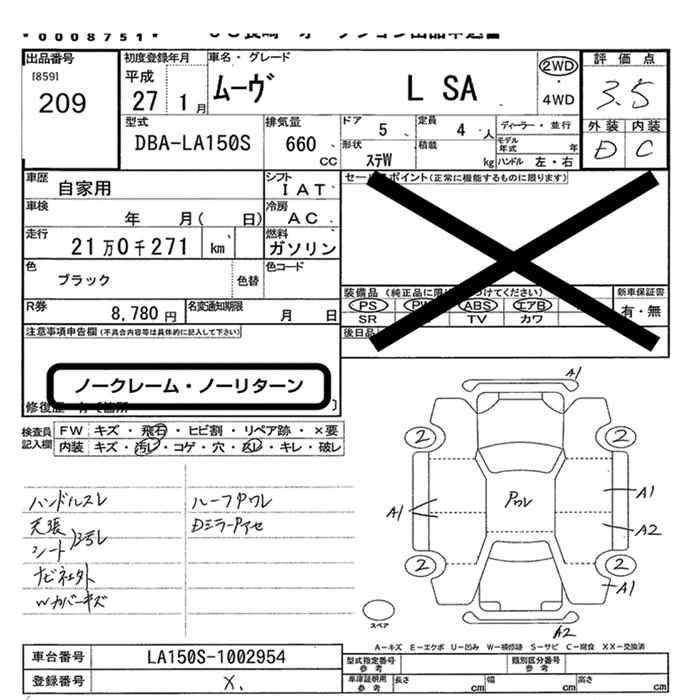 *0008751*
出品番号
[859]
209
初度登録年月
平成
27 1月
車名・グレード
ムーヴ L SA
2WD
・
4WD
評価点
3.5
外装 内装
D C
型式
DBA-LA150S
排気量
660
cc
ドア
5
定員
4 人
ディーラー・並行
モデル年式 年
形状
ステW
積載
kg
ハンドル 左・右
車歴
自家用
シフト
IAT
セールスポイント(正常に機能するものに限ります)
車検
年 月( 日)
冷房
AC
走行
21万0千271 km
燃料
ガソリン
色
ブラック
色替
色コード
装備品(純正品に限 つけてください)
PS PW ABS エアB
SR TV カワ
新車保証書
有・無
後日品
R券
8,780円
名変通知期限
月 日
注意事項申告欄(不具合内容等は具体的に記入して下さい)
ノークレーム・ノーリターン
修復歴
検査員
記入欄
FW キズ・飛石・ヒビ割・リペア跡・×要
内装 キズ・汚レ・コゲ・穴・スレ・キレ・破レ
ハンドルスレ
天張
シート 汚レ
ナビネェタト
Wカバーキズ
ルーフワレ
Dミラーアセ
A1
2 2
A1
A1
A2
2 2
A1
A2
スペア
A-キズ E-エクボ U-凹み W-補修跡 S-サビ C-腐食 XX-交換済
車台番号
LA150S-1002954
登録番号
X.
型式指定番号
参考
類別区分番号
参考
車庫証明用
参考
長さ cm
幅 cm
高さ cm